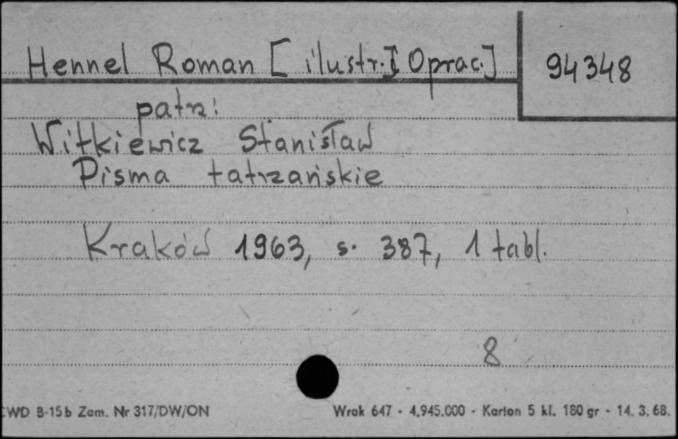 Hennel Roman [ilustr.I Oprac.]
94348
patrz:
Witkiewicz Stanisław
Pisma tatrzańskie
Kraków 1963, s. 387, 1 tabl.
8
CWD B-15b Zam. Nr 317/DW/ON
Wrak 647 - 4,945.000 - Karton 5 kl. 180 gr - 14. 3. 68.